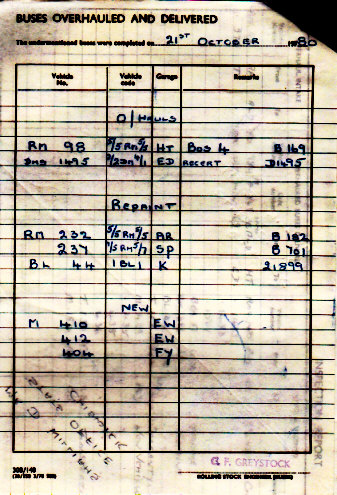 BUSES OVERHAULED AND DELIVERED
The undermentioned buses were completed on 21ST OCTOBER 1980
Vehicle No. Vehicle code Garage Remarks
O/HAULS
RM 98 5/5RM5/5 HT BOS 4 B169
DMS 1495 ED RECERT D1495
REPAINT
RM 232 5/5RM5/5 AR B 182
237 5/5RM5/7 SP B 701
BL 44 1BL1 K 21899
NEW
M 410 EW
412 EW
404 FY
CHISWICK
STAFF OFFICE
MR D MILLICHAP
INSPECTOR'S REPORT
G. F. GREYSTOCK
ROLLING STOCK ENGINEER (BUSES)
308/140